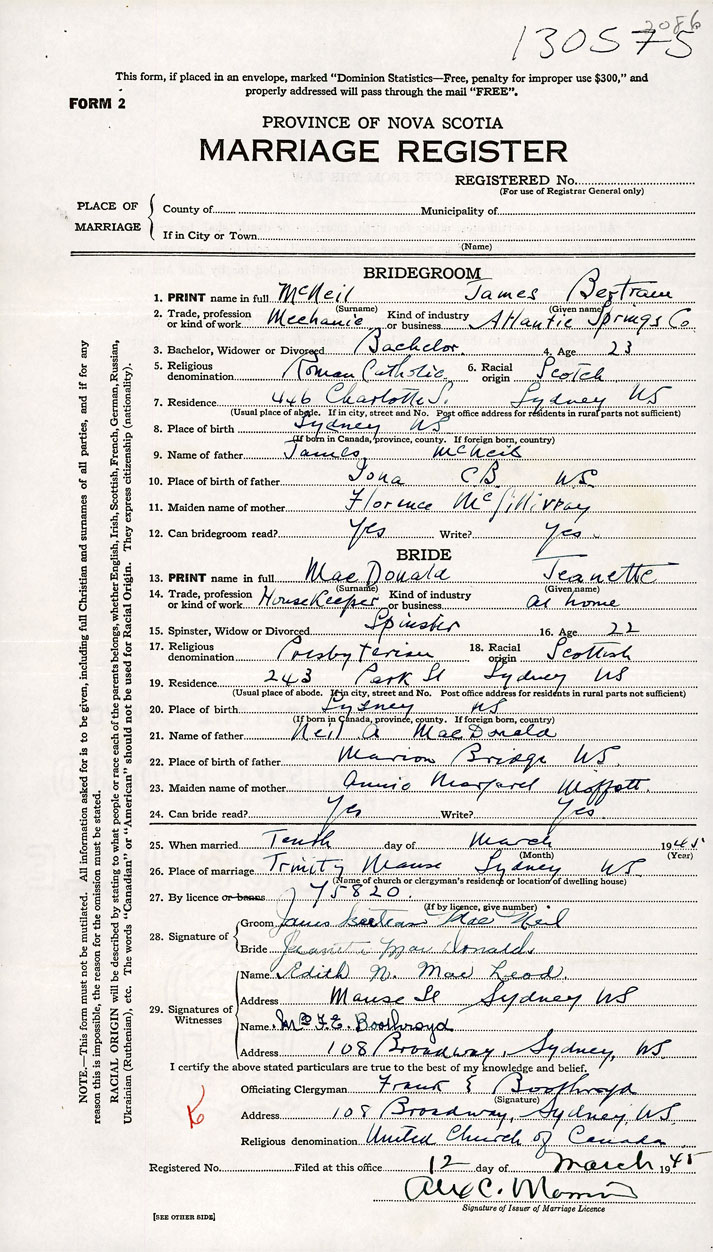 2086
130575
This form, if placed in an envelope, marked "Dominion Statistics—Free, penalty for improper use $300," and
properly addressed will pass through the mail "FREE".
FORM 2
PROVINCE OF NOVA SCOTIA
MARRIAGE REGISTER
REGISTERED No.
(For use of Registrar General only)
PLACE OF MARRIAGE
County of Municipality of
If in City or Town
(Name)
BRIDEGROOM
1. PRINT name in full McNeil James Bertram
(Surname) (Given name)
2. Trade, profession or kind of work Mechanic Kind of industry or business Atlantic Springs Co
3. Bachelor, Widower or Divorced Bachelor. 4. Age 23
5. Religious denomination Roman Catholic 6. Racial origin Scotch
7. Residence 446 Charlotte S. Sydney NS
(Usual place of abode. If in city, street and No. Post office address for residents in rural parts not sufficient)
8. Place of birth Sydney NS
(If born in Canada, province, county. If foreign born, country)
9. Name of father James McNeil
10. Place of birth of father Iona C.B. N.S.
11. Maiden name of mother Florence McGillivray
12. Can bridegroom read? Yes Write? Yes.
BRIDE
13. PRINT name in full MacDonald Jeanette
(Surname) (Given name)
14. Trade, profession or kind of work Housekeeper Kind of industry or business at home
15. Spinster, Widow or Divorced Spinster 16. Age 22
17. Religious denomination Presbyterian 18. Racial origin Scottish
19. Residence 243 Park St Sydney NS
(Usual place of abode. If in city, street and No. Post office address for residents in rural parts not sufficient)
20. Place of birth Sydney NS
(If born in Canada, province, county. If foreign born, country)
21. Name of father Neil A MacDonald
22. Place of birth of father Marion Bridge NS.
23. Maiden name of mother Annie Margaret Moffatt.
24. Can bride read? Yes Write? Yes.
25. When married Tenth day of March 1945
(Month) (Year)
26. Place of marriage Trinity Manse Sydney NS.
(Name of church or clergyman's residence or location of dwelling house)
27. By licence or banns J 75820.
(If by licence, give number)
28. Signature of
Groom James Bertram MacNeil
Bride Jeanette MacDonald
29. Signatures of Witnesses
Name Edith N. MacLeod.
Address Manse St Sydney NS
Name Mrs F.E. Boothroyd
Address 108 Broadway, Sydney, NS
I certify the above stated particulars are true to the best of my knowledge and belief.
Officiating Clergyman Frank E Boothroyd
(Signature)
Address 108 Broadway, Sydney, NS.
Religious denomination United Church of Canada
Registered No. Filed at this office 12 day of March 1945
Alex C.
Signature of Issuer of Marriage Licence
[SEE OTHER SIDE]
NOTE.—This form must not be mutilated. All information asked for is to be given, including full Christian and surnames of all parties, and if for any
reason this is impossible, the reason for the omission must be stated.
RACIAL ORIGIN will be described by stating to what people or race each of the parents belongs, whether English, Irish, Scottish, French, German, Russian,
Ukrainian (Ruthenian), etc. The words "Canadian" or "American" should not be used for Racial Origin. They express citizenship (nationality).